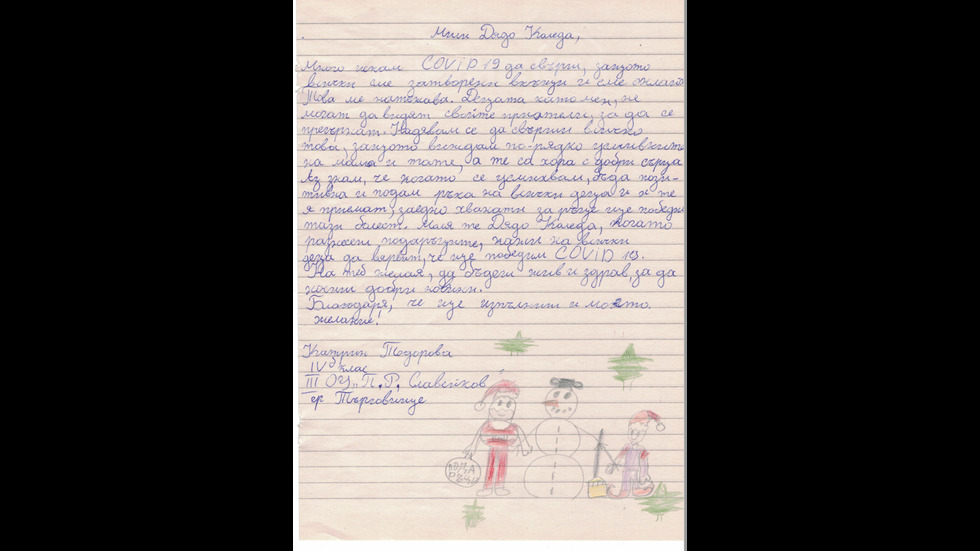 Мили Дядо Коледа,
Много искам COVID 19 да свърши, защото
всички сме затворени вкъщи и сме
Това ме натъжава. Децата като мен, не
могат да видят своите приятели, за да се
прегърнат. Надявам се да свърши всичко
това, защото виждам по-рядко усмивките
на мама и тате, а те са хора с добри сърца
Аз знам, че когато се усмихвам, бъда пози-
тивна и подам ръка на всички деца и те
я приемат, заедно хванати за ръце ще победим
тази болест. Моля те Дядо Коледа, когато
разнесеш подаръците, кажи на всички
деца да вярват, че ще победим COVID 19.
На теб желая, да бъдеш жив и здрав, за да
носиш добри новини.
Благодаря, че ще изпълниш и моето
желание!
Катрин Тодорова
IV клас
III ОУ "П. Р. Славейков
гр Търговище
ПОДА
РЪЦИ